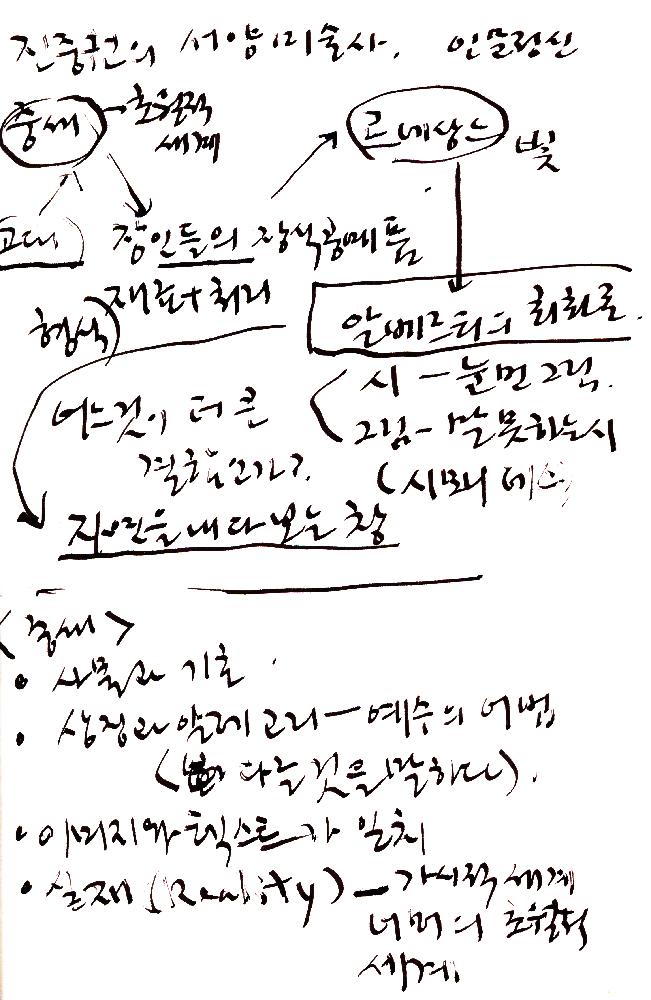 진중권의 서양미술사.
중세 초월적
세계
르네상스 빛
고대 장인들의 장식공예품
형식 재료+처리
알베르티의 회화론.
시 - 눈먼 그림.
그림 - 말 못하는 시
(시모니데스
어느것이 더 큰
결함인가?
자연을 내다 보는 창
<중세>
• 사물과 기호
• 상징과 알레고리 - 예수의 어법
(다른 것을 말하다).
• 이미지와 텍스트가 일치
• 실재 (Reality) - 가시적 세계
너머의 초월적
세계.